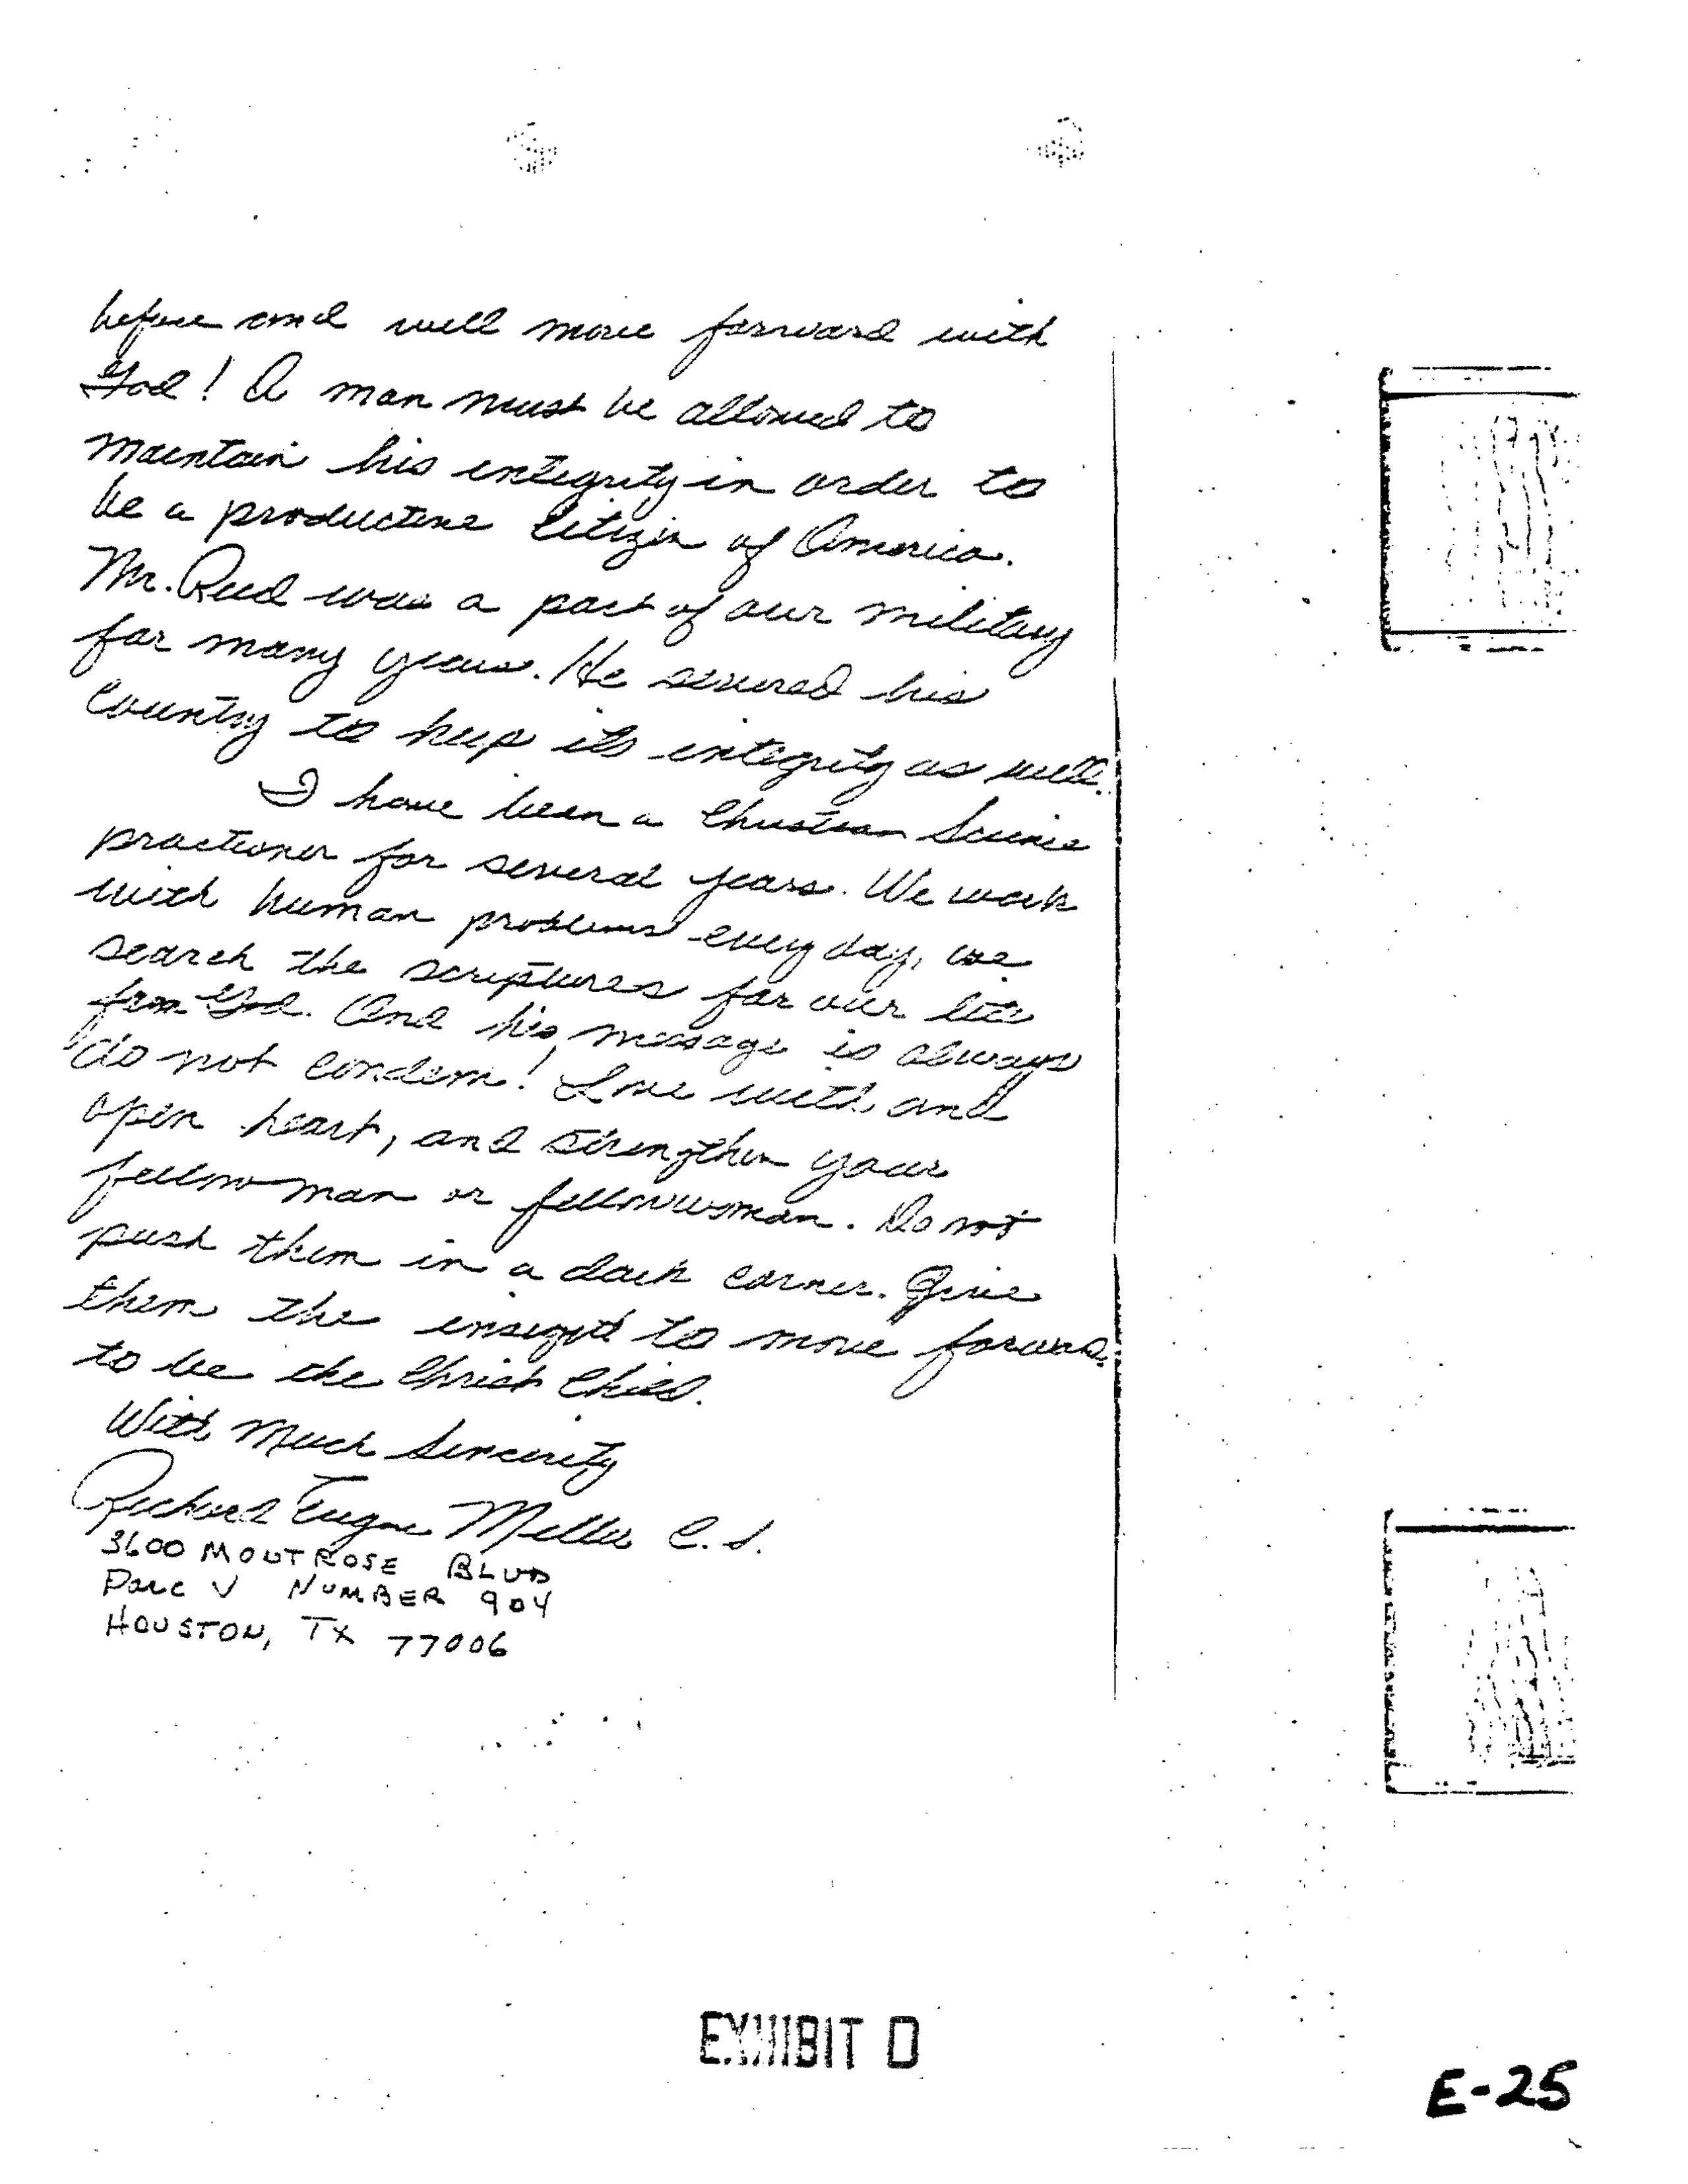 before and will move forward with
God! A man must be allowed to
maintain his integrity in order to
be a productive Citizen of America.
Mr. Reed was a part of our military
for many years. He served his
Country to keep its integrity as well.
I have been a Christian Science
practioner for several years. We work
with human problems every day, we
search the scriptures for our
from God. And his message is always
do not condem! Love with and
open heart, and strengthen your
fellow man or fellowwoman. Do not
push them in a dark corner. Give
them the to move forward
to be the Christ Child.
With Much Sincerity
Richard Eugene Miller C.S.
3600 MONTROSE BLVD
Parc V NUMBER 904
HOUSTON, TX 77006
EXHIBIT D
E-25